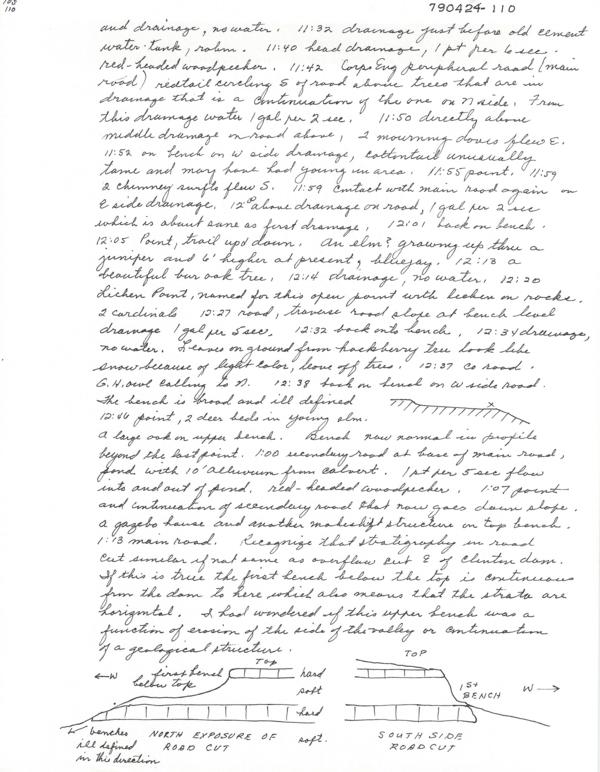 110
790424-110
and drainage, no water. 11:32 drainage just before old cement
water tank, robin. 11:40 head drainage, 1 pt per 6 sec.
red-headed woodpecker. 11:42 Corps Eng peripheral road (main
road) redtail circling S of road above trees that are in
drainage that is a continuation of the one on N side. From
this drainage water 1 gal per 2 sec. 11:50 directly above
middle drainage on road above, 2 mourning doves flew E.
11:52 on bench on W side drainage, cottontail unusually
tame and may have had young in area. 11:55 point. 11:59
2 chimney swifts flew S. 11:59 contact with main road again on
E side drainage. 12:00 above drainage on road, 1 gal per 2 sec
which is about same as first drainage. 12:01 back on bench.
12:05 Point, trail up & down. An elm? growing up thru a
juniper and 6' higher at present, bluejay. 12:13 a
beautiful bur oak tree. 12:14 drainage, no water. 12:20
Lichen Point, named for this open point with lichen on rocks.
2 cardinals 12:27 road, traverse road slope at bench level
drainage 1 gal per 5 sec. 12:32 back onto bench. 12:34 drainage,
no water. Leaves on ground from hackberry tree look like
snow because of light color, leave off trees. 12:37 Co road.
G.H. owl calling to N. 12:38 back on bench on W side road.
The bench is broad and ill defined
12:46 point, 2 deer beds in young elm.
x
a large oak on upper bench. Bench now normal in profile
beyond the last point. 1:00 secondary road at base of main road,
pond with 10' alluvium from culvert. 1 pt per 5 sec flow
into and out of pond. red-headed woodpecker. 1:07 point
and continuation of secondary road that now goes down slope.
a gazebo house and another makeshift structure on top bench.
1:13 main road. Recognize that stratigraphy in road
cut similar if not same as overflow cut E of Clinton dam.
If this is true the first bench below the top is continuous
from the dam to here which also means that the strata are
horizontal. I had wondered if this upper bench was a
function of erosion of the side of the valley or continuation
of a geological structure.
TOP
TOP
← W first bench
below top
hard
soft
hard
soft.
1st
BENCH
W →
benches
ill defined
in this direction
NORTH EXPOSURE OF
ROAD CUT
SOUTH SIDE
ROADCUT